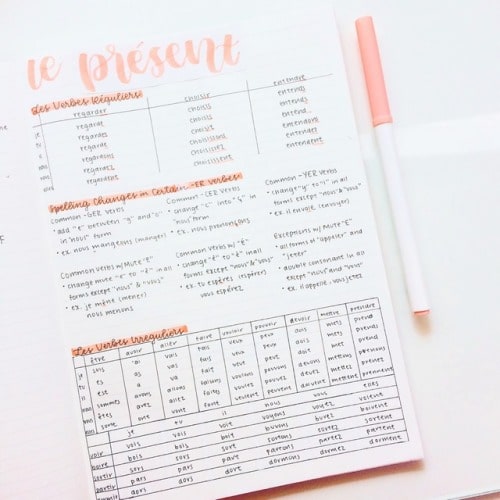 le présent
Les Verbes Réguliers
regarder choisir entendre
regarde choisis entends
regardes choisis entends
regarde choisit entend
regardons choisissons entendons
regardez choisissez entendez
regardent choisissent entendent
Spelling Changes in Certain -ER Verbs
Common -GER Verbs
• add "e" between "g" and "o"
in "nous" form
• ex. nous mangeons (manger)
Common -CER Verbs
• change "c" into "ç" in
"nous" form
• ex. nous prononçons
Common -YER Verbs
• change "y" to "i" in all
forms except "nous" & "vous"
• ex. il envoie (envoyer)
Common Verbs w/ Mute "E"
• change mute "e" to "è" in all
forms except "nous" & "vous"
• ex. je mène (mener)
nous menons
Common Verbs w/ "É"
• change "é" to "è" in all
forms except "nous" & "vous"
• ex. tu espères (espérer)
vous espérez
Exceptions w/ Mute "E"
• all forms of "appeler" and
"jeter"
• double consonant in all
except "nous" and "vous"
• ex. il appelle, vous jetez
Les Verbes Irréguliers
être avoir aller faire vouloir pouvoir devoir mettre prendre
je suis ai vais fais veux peux dois mets prends
tu es as vas fais veux peux dois mets prends
est a va fait veut peut doit met prend
nous sommes avons allons faisons voulons pouvons devons mettons prenons
vous êtes avez allez faites voulez pouvez devez mettez prenez
sont ont vont font veulent peuvent doivent mettent prennent
je tu il nous vous elles
voir vois vois voit voyons voyez voient
boire bois bois boit buvons buvez boivent
sortir sors sors sort sortons sortez sortent
partir pars pars part partons partez partent
dors dors dort dormons dormez dorment